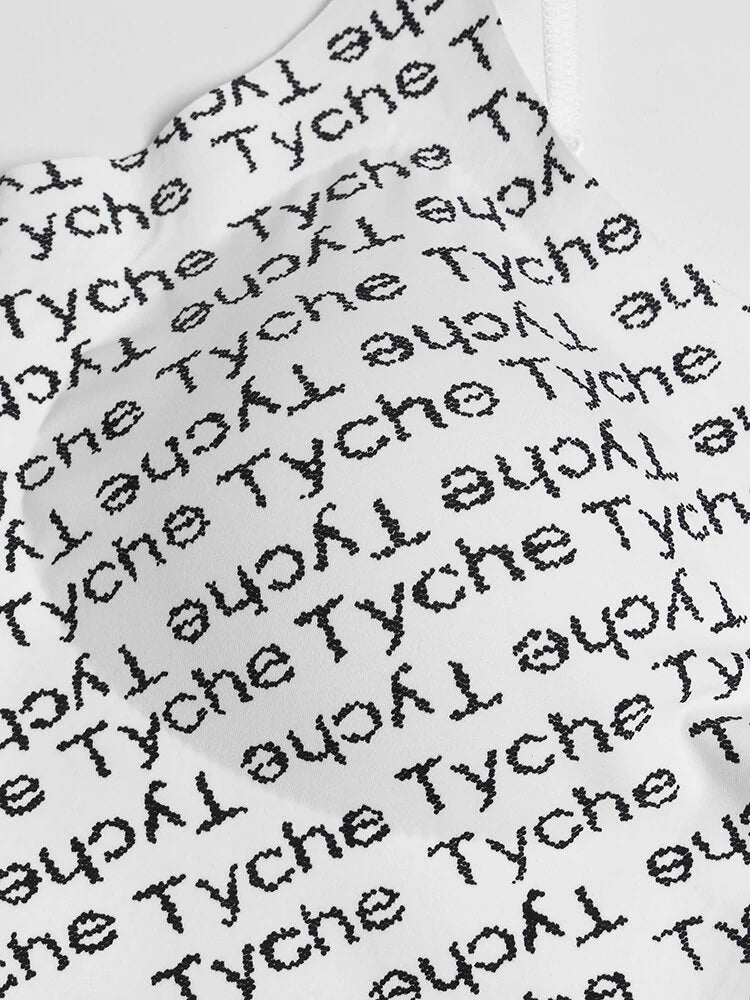 Tyche Tyche
Tyche Tyche
Tyche Tyche
Tyche Tyche
Tyche Tyche
Tyche Tyche Tyche
Tyche Tyche
Tyche Tyche Tyche
Tyche Tyche
Tyche Tyche Tyche
Tyche Tyche
Tyche Tyche
Tyche Tyche
Tyche Tyche
Tyche Tyche